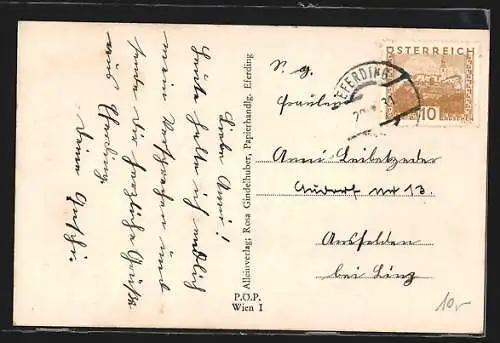 Liebe Anni!
Heute halte ich endlich
mein Versprechen und
sende Dir herzliche Grüße
aus Eferding.
Deine
Alleinverlag: Rosa Gindelhuber, Papierhandlg. Eferding
P.Ö.P.
Wien I
ÖSTERREICH
10
EFERDING
S. g.
Fräulein
Anni Leibetzeder
Audorf Nr 13.
Ansfelden
bei Linz
10,-